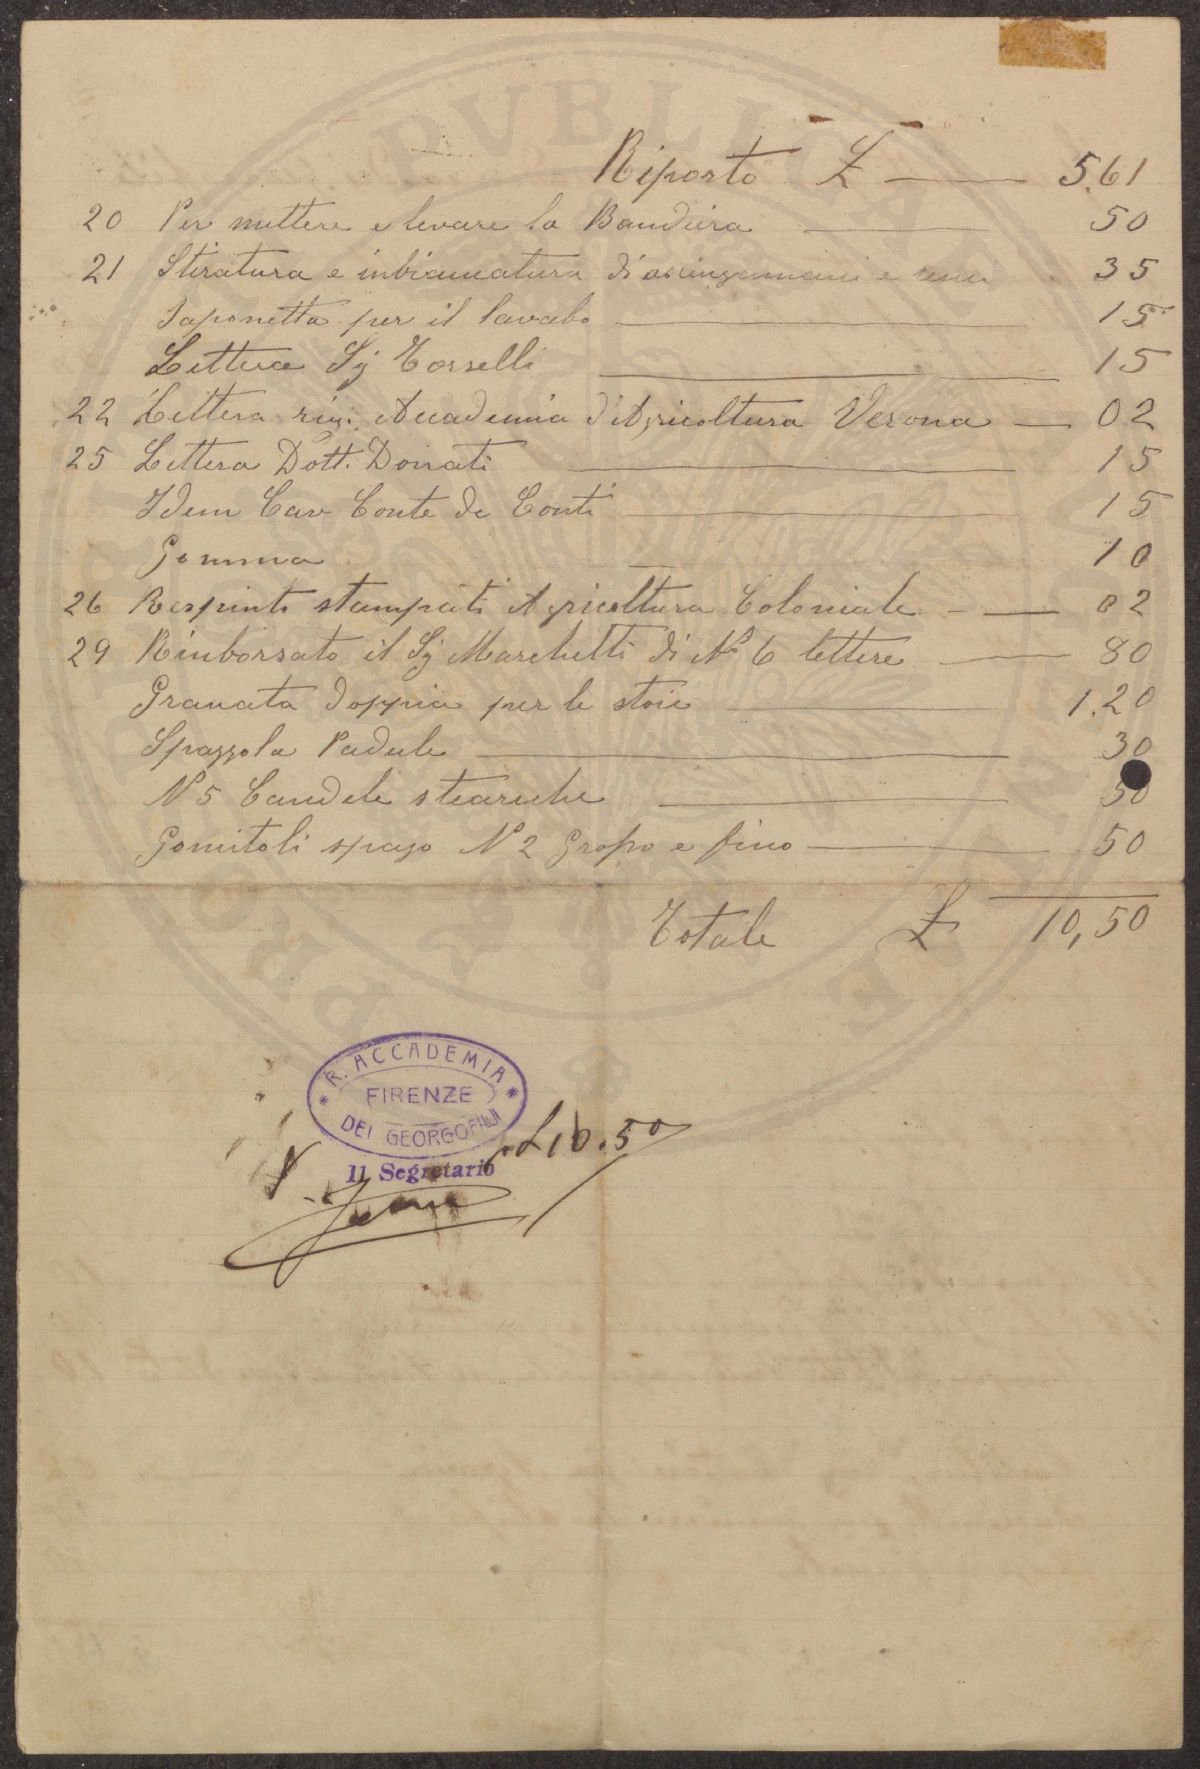 Riporto £ 5.61
20 Per mettere e levare la Bandiera 50
21 Stiratura e inbiancatura di asciugamani e 35
Saponetta per il lavabo 15
Lettera Sg Torselli 15
22 Lettera rig. Accademia d'Agricoltura Verona 02
25 Lettera Dott. Donati 15
Idem Cav Conte de Conti 15
Gomma 10
26 Respinti stampati Agricoltura Coloniale 02
29 Rimborsato il Sg Marchetti di No 6 lettere 80
Granata doppia per le stoie 1.20
Spazzola Padule 30
N 5 Candele steariche 50
Gomitoli spago N 2 Grosso e fino 50
Totale £ 10,50
R. ACCADEMIA
FIRENZE
DEI GEORGOFILI
£ 10.50
Il Segretario